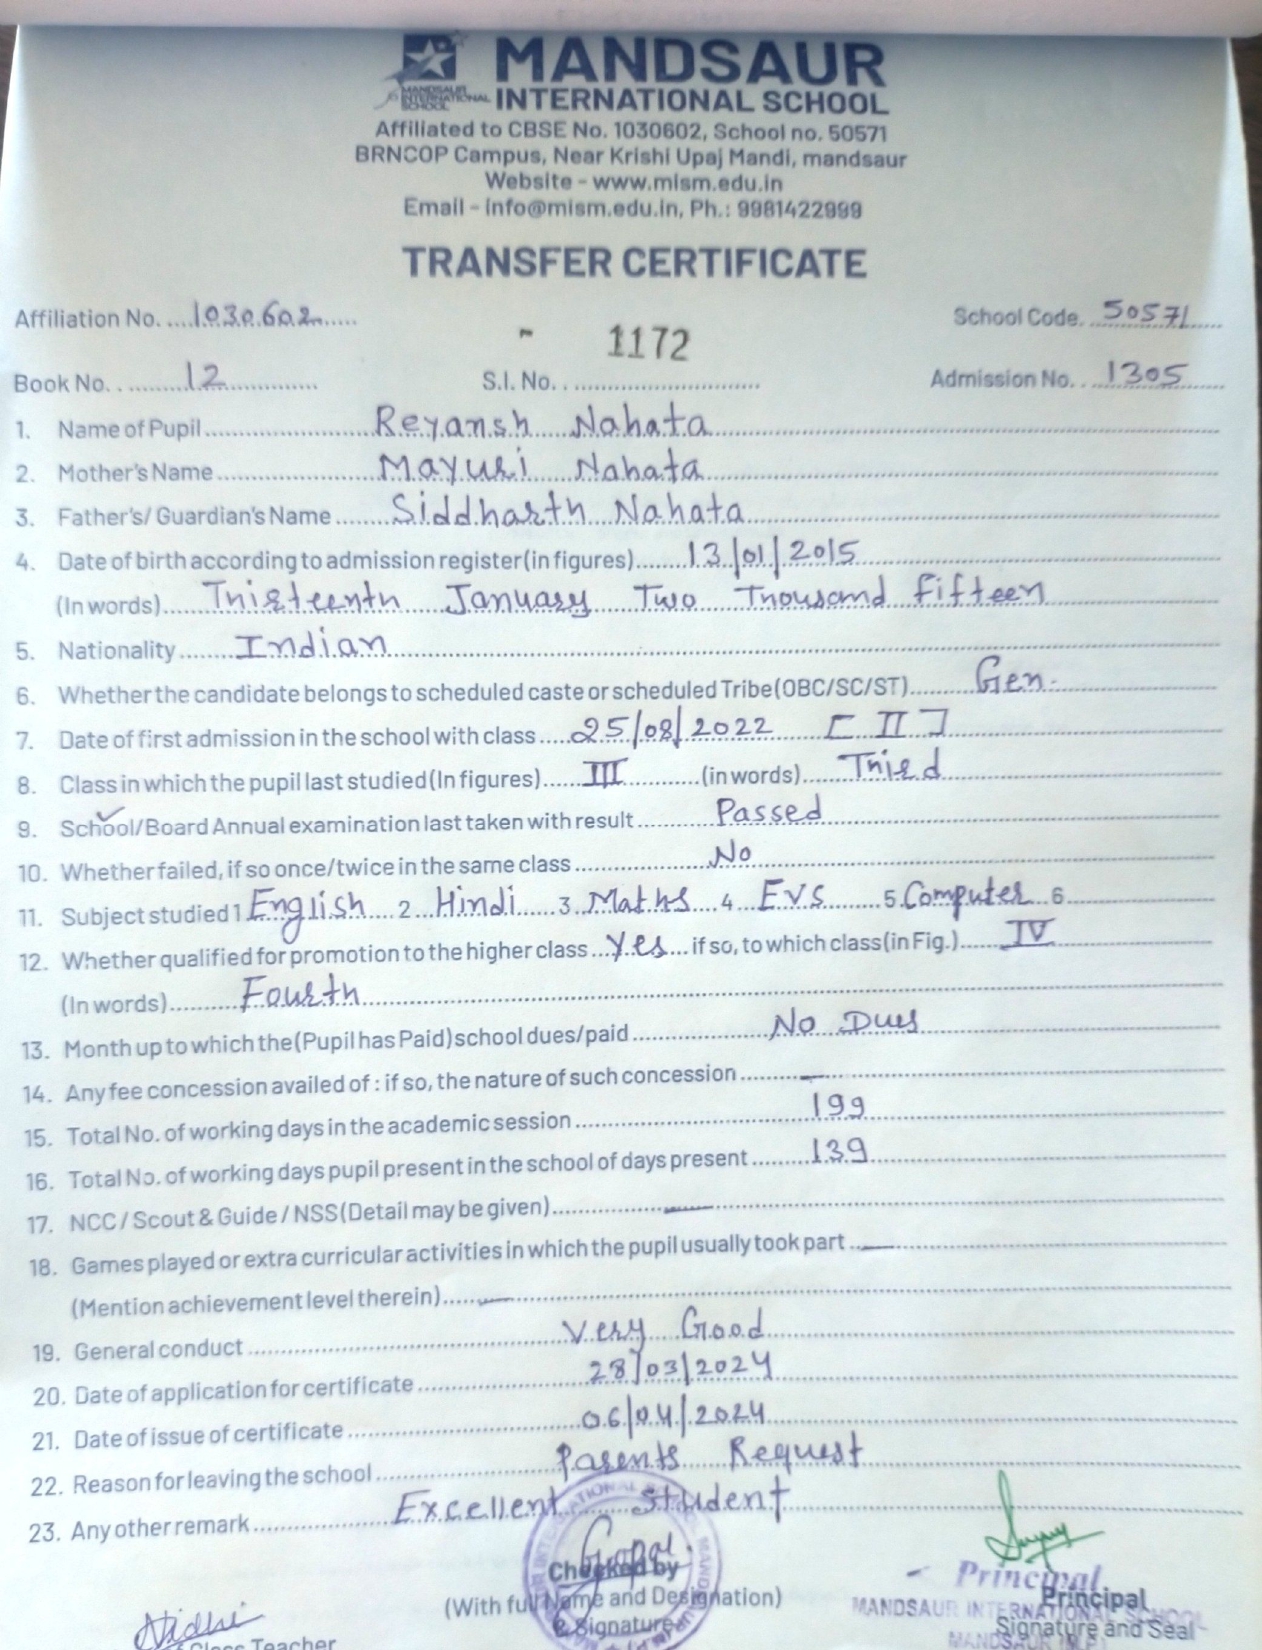 MANDSAUR
INTERNATIONAL SCHOOL
MANDSAUR INTERNATIONAL SCHOOL
Affiliated to CBSE No. 1030602, School no. 50571
BRNCOP Campus, Near Krishi Upaj Mandi, mandsaur
Website - www.mism.edu.in
Email - info@mism.edu.in, Ph.: 9981422999
TRANSFER CERTIFICATE
Affiliation No. ....1030602..... School Code. 50571
Book No. . 12 S.I. No. . - 1172 Admission No. . 1305
1. Name of Pupil Reyansh Nahata
2. Mother's Name Mayuri Nahata
3. Father's/ Guardian's Name Siddharth Nahata
4. Date of birth according to admission register (in figures) 13/01/2015
(In words) Thirteenth January Two Thousand Fifteen
5. Nationality Indian
6. Whether the candidate belongs to scheduled caste or scheduled Tribe (OBC/SC/ST) Gen.
7. Date of first admission in the school with class 25/08/2022 [ II ]
8. Class in which the pupil last studied (In figures) III (in words) Third
9. School/Board Annual examination last taken with result Passed
10. Whether failed, if so once/twice in the same class No
11. Subject studied 1 English 2 Hindi 3 Maths 4 EVS 5 Computer 6
12. Whether qualified for promotion to the higher class Yes if so, to which class (in Fig.) IV
(In words) Fourth
13. Month up to which the (Pupil has Paid) school dues/paid No Dues
14. Any fee concession availed of : if so, the nature of such concession —
15. Total No. of working days in the academic session 199
16. Total No. of working days pupil present in the school of days present 139
17. NCC / Scout & Guide / NSS (Detail may be given) —
18. Games played or extra curricular activities in which the pupil usually took part —
(Mention achievement level therein) —
19. General conduct Very Good
20. Date of application for certificate 28/03/2024
21. Date of issue of certificate 06/04/2024
22. Reason for leaving the school Parents Request
23. Any other remark Excellent Student
Gopal
Checked by
(With full Name and Designation)
& Signature
Nidhi
Class Teacher
Principal
MANDSAUR INTERNATIONAL SCHOOL
Principal
Signature and Seal